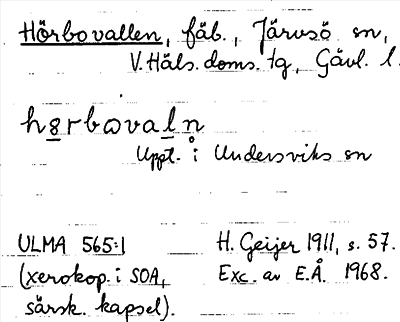 Hörbovallen, fäb., Järvsö sn,
V. Häls. doms. tg, Gävl. l.
hərbovaln
Uppt. i Undersviks sn
ULMA 565:1
(xerokop. i SOA,
särsk. kapsel).
H. Geijer 1911, s. 57.
Exc. av E.Å. 1968.